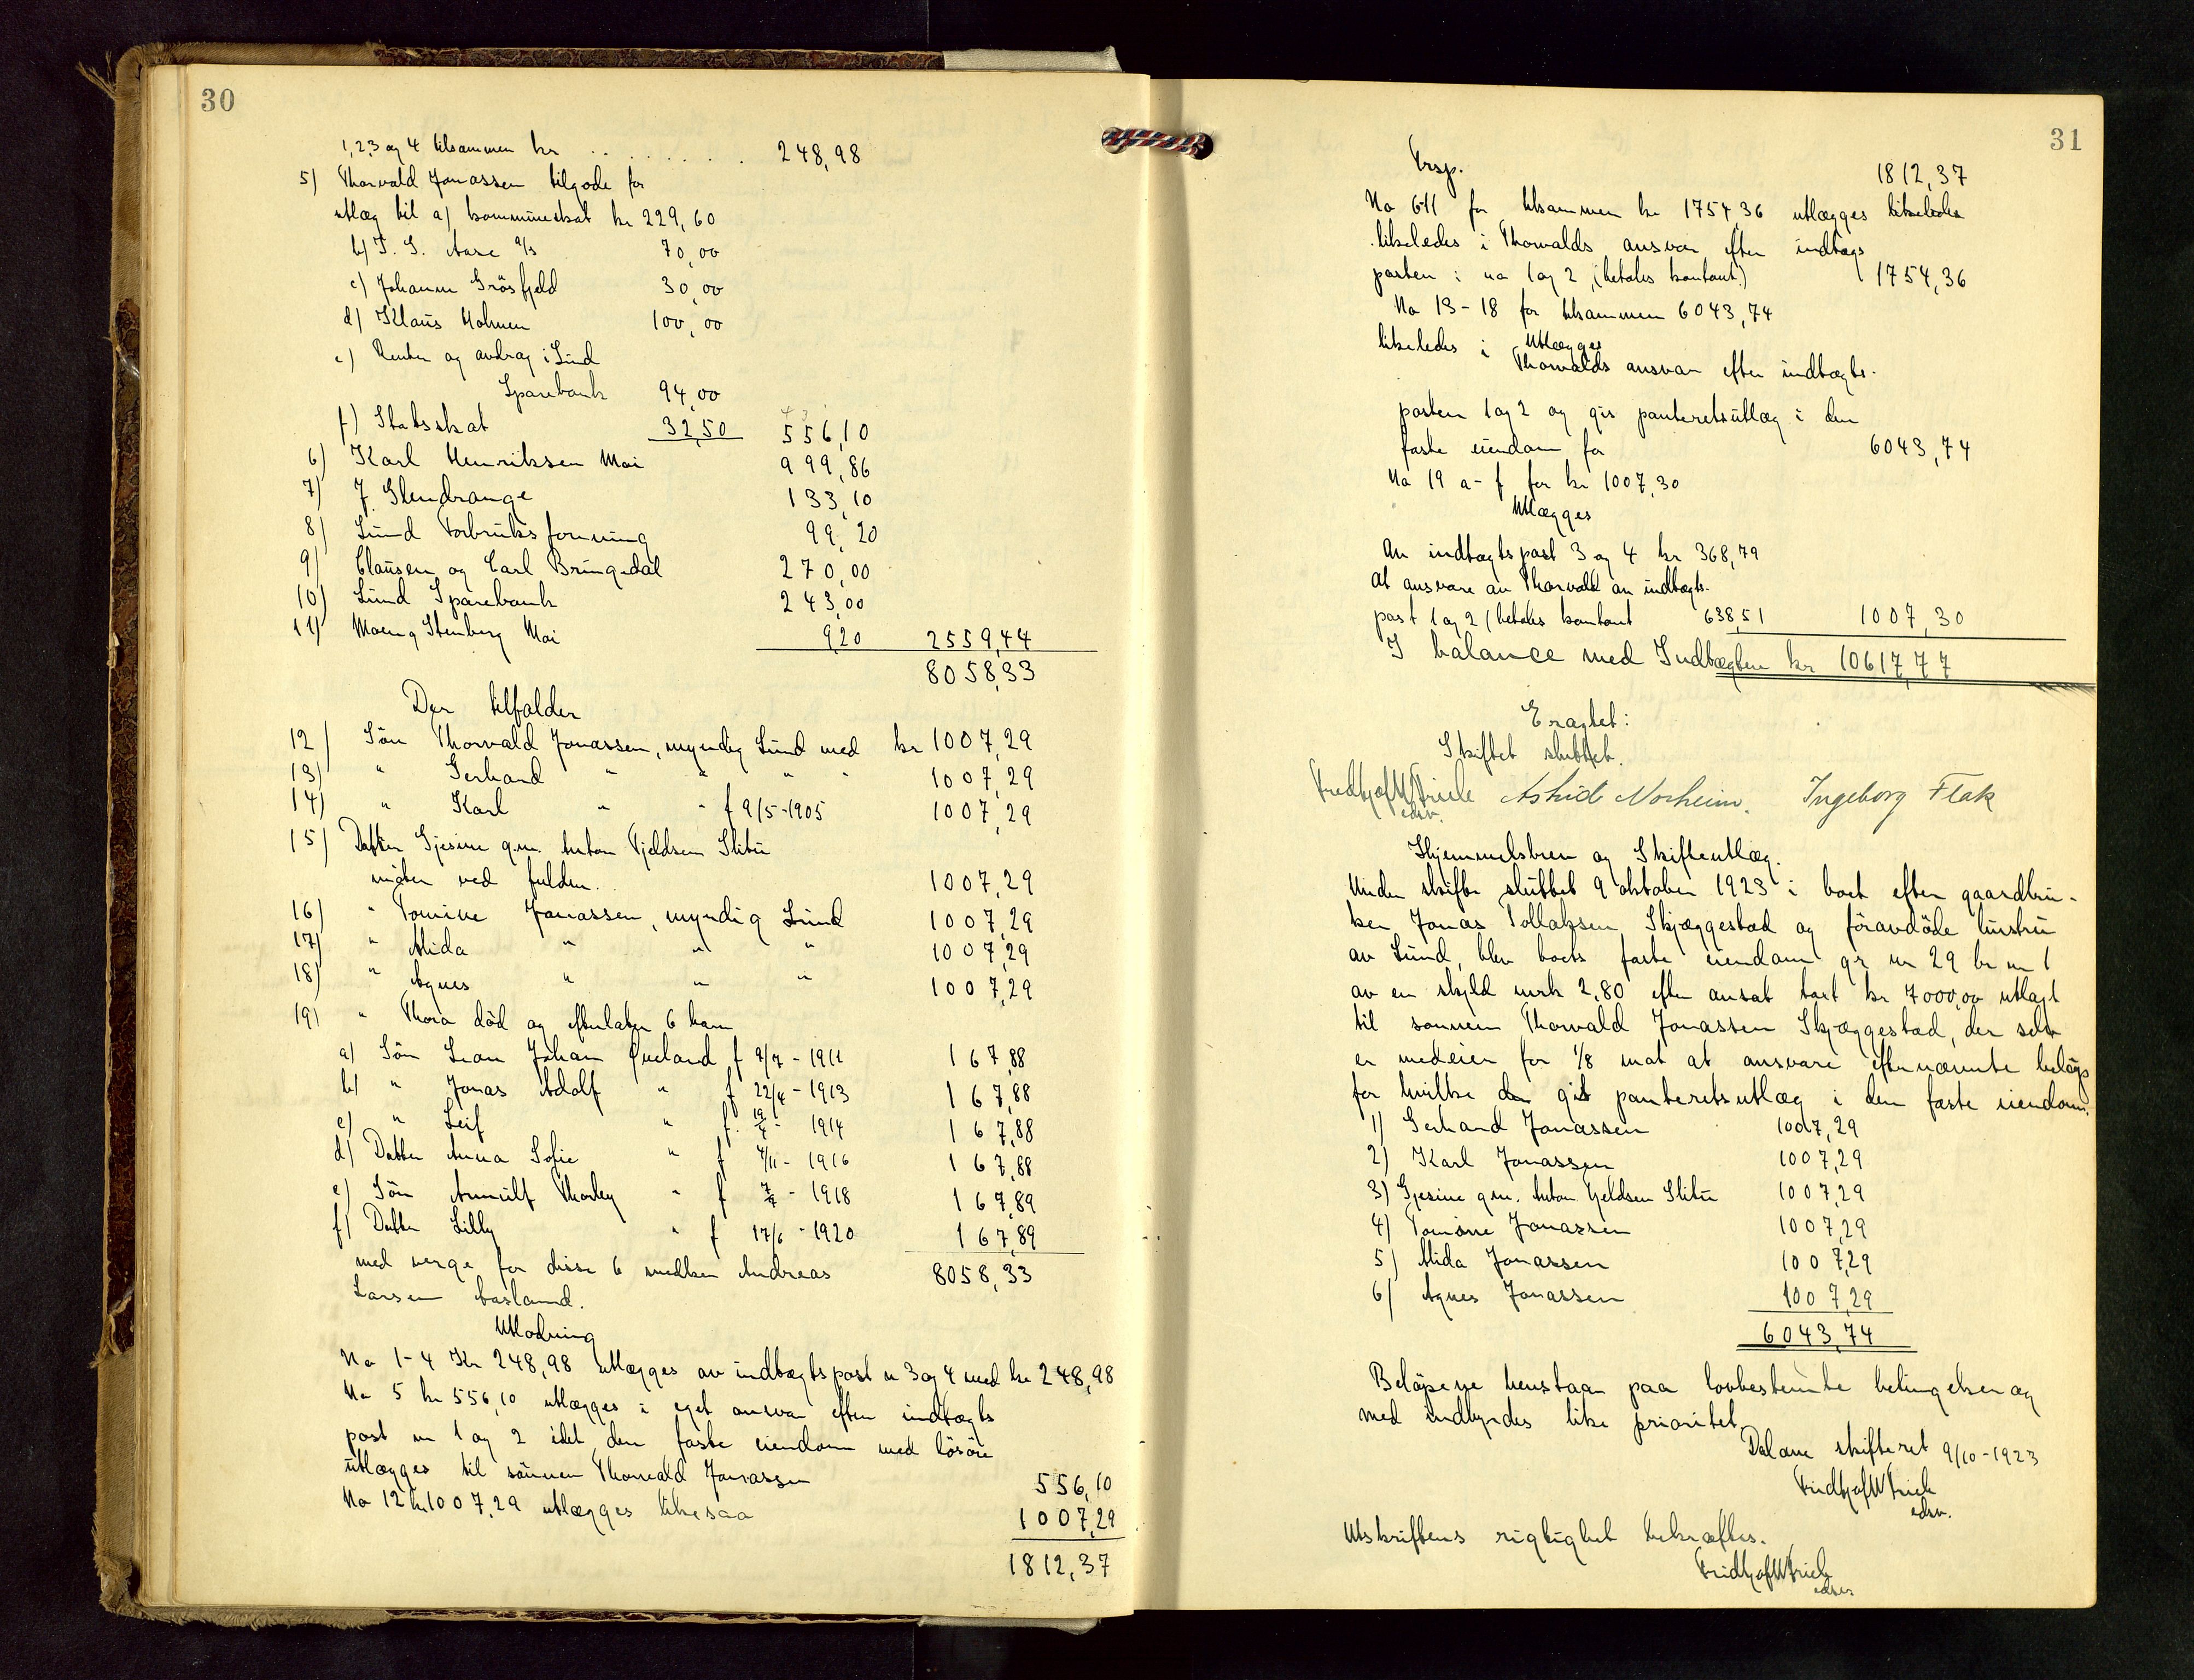 30
1, 2, 3 og 4 tilsammen kr . . . . . . . . 248,98
5) Thorvald Jonassen tilgode for
utlæg til a) kommuneskat kr 229,60
b) T. S. Aase a/s 70,00
c) Johann Grösfjeld 30,00
d) Klaus Holmen 100,00
e) Renter og avdrag i Lund
Sparebank 94,00
f) Statsskat 32,50 556,10
6) Karl Henriksen Moi 999,86
7) J. Slendrange 133,10
8) Lund Forbruksforening 99,20
9) Clausen og Carl Bringedal 270,00
10) Lund Sparebank 243,00
11) Moen g Stenberg Moi 9,20 2559,44
8058,33
Der tilfalder
12) Sön Thorvald Jonassen, myndig Lund med kr 1007,29
13) " Gerhard " " " " 1007,29
14) " Karl " " f 9/5-1905 1007,29
15) Datter Gjesine g.m. Anton Fjeldsen Slitu
møter ved fulden. 1007,29
16) " Tomine Jonassen, myndig Lund 1007,29
17) " Alida " " " 1007,29
18) " Agnes " " " 1007,29
19) " Thora död og efterlater 6 barn
a) Sön Leon Johan Qveland f 9/7 - 1911 167,88
b) " Jonas Adolf " f 22/4 - 1913 167,88
c) " Leif " f. - 1914 167,88
d) Datter Anna Sofie " f 4/11 - 1916 167,88
e) Sön Arnulf Thorley " f - 1918 167,89
f) Datter Lilly " f 17/6 - 1920 167,89
med verge for disse 6 Andreas 8058,33
Larsen
Utlodning
No 1-4 Kr 248,98 utlægges av indtægtspost n 3 og 4 med kr 248,98
No 5 kr 556,10 utlægges i eget ansvar efter indtægts
post nr 1 og 2 idet den faste eiendom med lösöre
utlægges til sönnen Thorvald Jonassen 556,10
No 12 kr 1007,29 utlægges likesaa 1007,29
1812,37
31
Trsp. 1812,37
No 6-11 for tilsammen kr 1754,36 utlægges likeledes
likeledes i Thorvalds ansvar efter indtægs
posten i no 1 og 2, (betales kontant) 1754,36
No 13-18 for tilsammen 6043,74
Utlægges
likeledes i Thorvalds ansvar efter indtægts-
posten 1 og 2 og gis panteretsutlæg i den
faste eiendom for 6043,74
No 19 a-f for kr 1007,30
Utlægges
Av indtægtspost 3 og 4 kr 368,79
At ansvare av Thorvald av indtægts-
post 1 og 2 (betales kontant 638,51 1007,30
I balance med Indtægten kr 10617,77
Eragtet:
Skiftet sluttet.
Fridtjof W Friele Astrid Norheim. Ingeborg Flak
edsv.
Hjemmelsbrev og Skifteutlæg.
Under skifte sluttet 9 oktober 1923 i boet efter gaardbru-
ker Jonas Tollaksen Skjæggestad og föravdöde hustru
av Lund, blev boets faste eiendom gr nr 29 br nr 1
av en skyld mrk 2,80 efter ansat takst kr 7000,00 utlagt
til sönnen Thorvald Jonassen Skjæggestad, der selv
er medeier for 1/8 mot at ansvare efternævnte belöp
for hvilke der gis panteretsutlæg i den faste eiendom.
1) Gerhard Jonassen 1007,29
2) Karl Jonassen 1007,29
3) Gjesine g.m. Anton Fjeldsen Slitu 1007,29
4) Tomine Jonassen 1007,29
5) Alida Jonassen 1007,29
6) Agnes Jonassen 1007,29
6043,74
Belöpene henstaar paa lovbestemte betingelser og
med indbyrdes like prioritet.
Dalane skifteret 9/10-1923
Fridtjof W Friele
edsv.
Utskriftens rigtighet bekræftes.
Fridtjof W Friele
edsv.